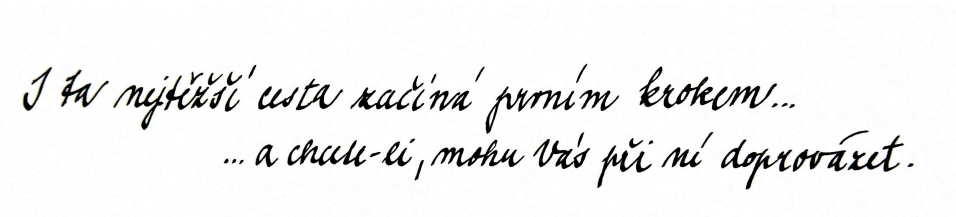 I ta nejtěžší cesta začíná prvním krokem...
... a chcete-li, mohu Vás při ní doprovázet.